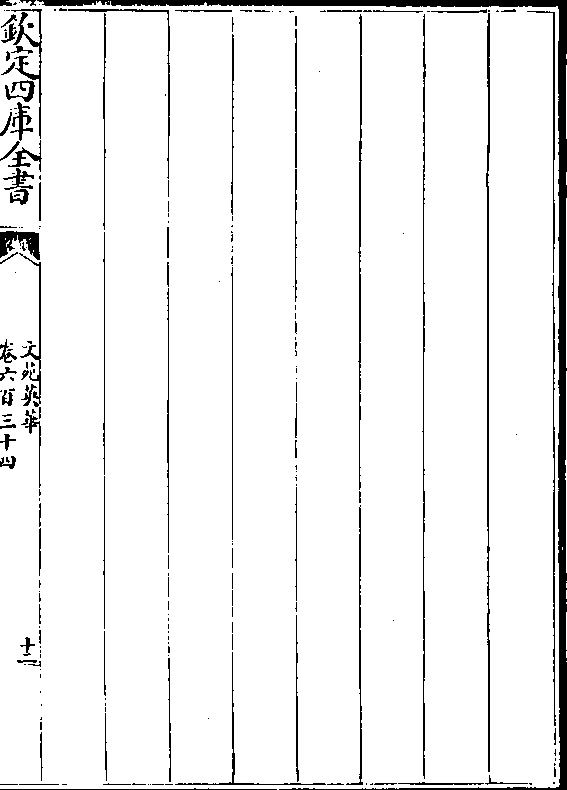 欽定四庫全書
文苑英華
卷六百三十四
十二